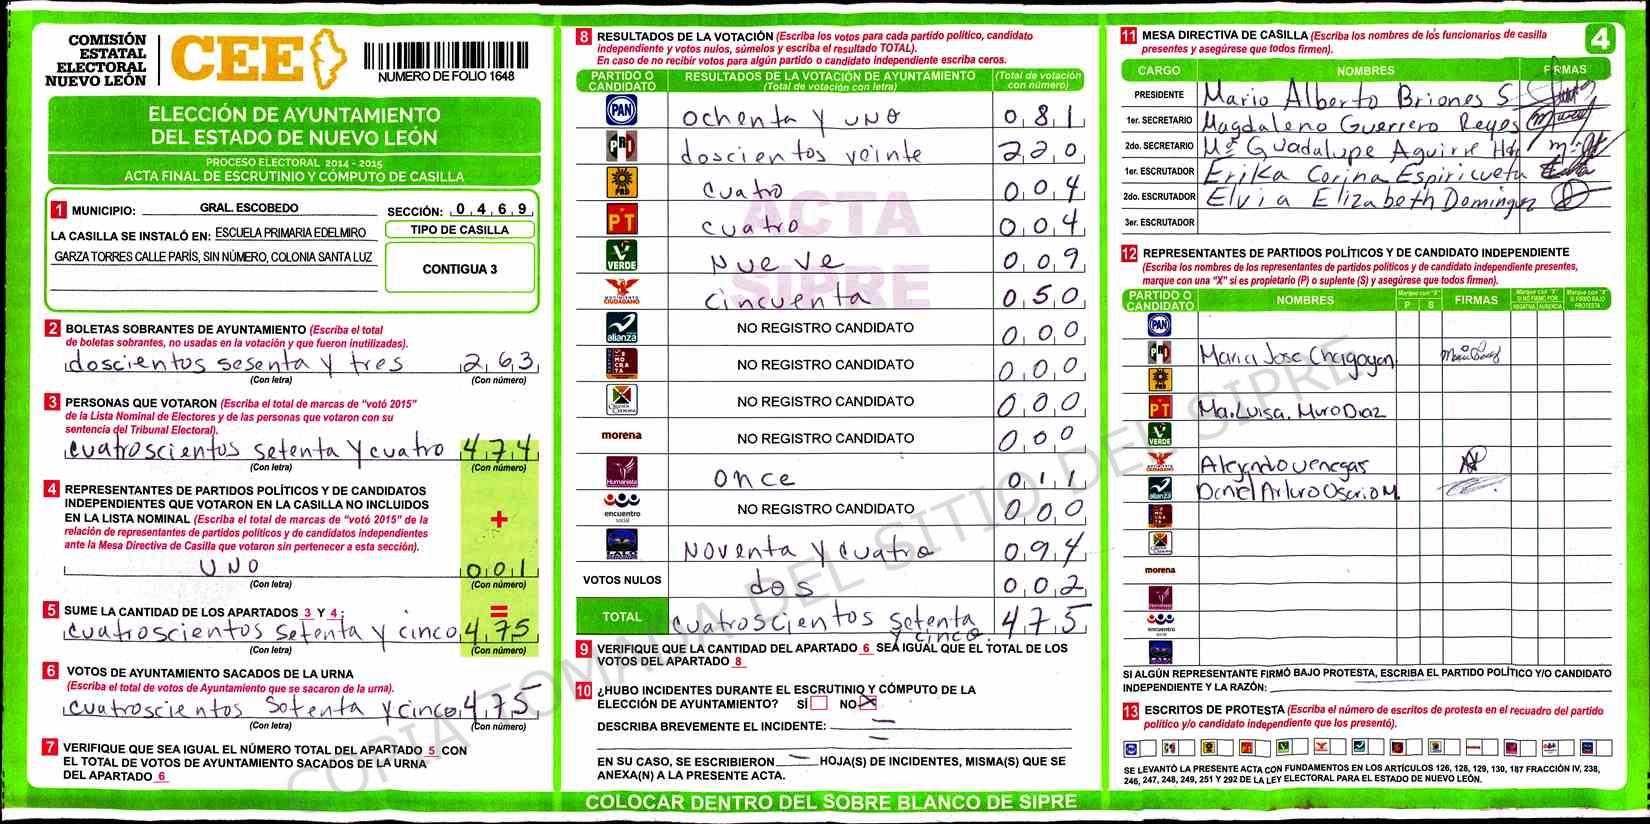 COMISIÓN
ESTATAL
ELECTORAL
NUEVO LEÓN
CEE
NUMERO DE FOLIO 1648
ELECCIÓN DE AYUNTAMIENTO
DEL ESTADO DE NUEVO LEÓN
PROCESO ELECTORAL 2014 - 2015
ACTA FINAL DE ESCRUTINIO Y CÓMPUTO DE CASILLA
1 MUNICIPIO: GRAL. ESCOBEDO SECCIÓN: 0 4 6 9
LA CASILLA SE INSTALÓ EN: ESCUELA PRIMARIA EDELMIRO
GARZA TORRES CALLE PARÍS, SIN NÚMERO, COLONIA SANTA LUZ
TIPO DE CASILLA
CONTIGUA 3
2 BOLETAS SOBRANTES DE AYUNTAMIENTO (Escriba el total
de boletas sobrantes, no usadas en la votación y que fueron inutilizadas).
doscientos sesenta y tres 2 6 3
(Con letra) (Con número)
3 PERSONAS QUE VOTARON (Escriba el total de marcas de "votó 2015"
de la Lista Nominal de Electores y de las personas que votaron con su
sentencia del Tribunal Electoral).
cuatroscientos setenta y cuatro 4 7 4
(Con letra) (Con número)
4 REPRESENTANTES DE PARTIDOS POLÍTICOS Y DE CANDIDATOS
INDEPENDIENTES QUE VOTARON EN LA CASILLA NO INCLUIDOS
EN LA LISTA NOMINAL (Escriba el total de marcas de "votó 2015" de la
relación de representantes de partidos políticos y de candidatos independientes
ante la Mesa Directiva de Casilla que votaron sin pertenecer a esta sección).
+
UNO 0 0 1
(Con letra) (Con número)
5 SUME LA CANTIDAD DE LOS APARTADOS 3 Y 4:
=
cuatroscientos setenta y cinco 4 7 5
(Con letra) (Con número)
6 VOTOS DE AYUNTAMIENTO SACADOS DE LA URNA
(Escriba el total de votos de Ayuntamiento que se sacaron de la urna).
cuatroscientos Setenta y cinco 4 7 5
(Con letra) (Con número)
7 VERIFIQUE QUE SEA IGUAL EL NÚMERO TOTAL DEL APARTADO 5 CON
EL TOTAL DE VOTOS DE AYUNTAMIENTO SACADOS DE LA URNA
DEL APARTADO 6
8 RESULTADOS DE LA VOTACIÓN (Escriba los votos para cada partido político, candidato
independiente y votos nulos, súmelos y escriba el resultado TOTAL).
En caso de no recibir votos para algún partido o candidato independiente escriba ceros.
PARTIDO O CANDIDATO RESULTADOS DE LA VOTACIÓN DE AYUNTAMIENTO (Total de votación con letra) (Total de votación con número)
PAN ochenta y uno 0 8 1
PRI doscientos veinte 2 2 0
PRD cuatro 0 0 4
PT cuatro 0 0 4
VERDE Nueve 0 0 9
MOVIMIENTO CIUDADANO cincuenta 0 5 0
alianza NO REGISTRO CANDIDATO 0 0 0
DEMOCRATA NO REGISTRO CANDIDATO 0 0 0
NO REGISTRO CANDIDATO 0 0 0
morena NO REGISTRO CANDIDATO 0 0 0
Humanista once 0 1 1
encuentro social NO REGISTRO CANDIDATO 0 0 0
Noventa y cuatro 0 9 4
VOTOS NULOS dos 0 0 2
TOTAL cuatroscientos setenta y cinco. 4 7 5
ACTA
SIPRE
9 VERIFIQUE QUE LA CANTIDAD DEL APARTADO 6 SEA IGUAL QUE EL TOTAL DE LOS
VOTOS DEL APARTADO 8
10 ¿HUBO INCIDENTES DURANTE EL ESCRUTINIO Y CÓMPUTO DE LA
ELECCIÓN DE AYUNTAMIENTO? SÍ NO X
DESCRIBA BREVEMENTE EL INCIDENTE:
EN SU CASO, SE ESCRIBIERON HOJA(S) DE INCIDENTES, MISMA(S) QUE SE
ANEXA(N) A LA PRESENTE ACTA.
COLOCAR DENTRO DEL SOBRE BLANCO DE SIPRE
11 MESA DIRECTIVA DE CASILLA (Escriba los nombres de los funcionarios de casilla
presentes y asegúrese que todos firmen).
4
CARGO NOMBRES FIRMAS
PRESIDENTE Mario Alberto Briones S
1er. SECRETARIO Magdaleno Guerrero Reyes
2do. SECRETARIO Ma Guadalupe Aguirre Hdz
1er. ESCRUTADOR Erika Corina Espiricueta
2do. ESCRUTADOR Elvia Elizabeth Dominguez
3er. ESCRUTADOR
12 REPRESENTANTES DE PARTIDOS POLÍTICOS Y DE CANDIDATO INDEPENDIENTE
(Escriba los nombres de los representantes de partidos políticos y de candidato independiente presentes,
marque con una "X" si es propietario (P) o suplente (S) y asegúrese que todos firmen).
PARTIDO O CANDIDATO NOMBRES Marque con "X" P S FIRMAS Marque con "X" SI NO FIRMÓ POR NEGATIVA AUSENCIA Marque con "X" SI FIRMÓ BAJO PROTESTA
PAN
PRI Maria Jose Chagoyan
PRD
PT Ma. Luisa. Muro Diaz
VERDE
MOVIMIENTO CIUDADANO Alejandro venegas
alianza Daniel Arturo Osorio M.
morena
Humanista
encuentro social
SI ALGÚN REPRESENTANTE FIRMÓ BAJO PROTESTA, ESCRIBA EL PARTIDO POLÍTICO Y/O CANDIDATO
INDEPENDIENTE Y LA RAZÓN:
13 ESCRITOS DE PROTESTA (Escriba el número de escritos de protesta en el recuadro del partido
político y/o candidato independiente que los presentó).
SE LEVANTÓ LA PRESENTE ACTA CON FUNDAMENTOS EN LOS ARTÍCULOS 126, 128, 129, 130, 187 FRACCIÓN IV, 238,
246, 247, 248, 249, 251 Y 292 DE LA LEY ELECTORAL PARA EL ESTADO DE NUEVO LEÓN.
COPIA TOMADA DEL SITIO DEL SIPRE